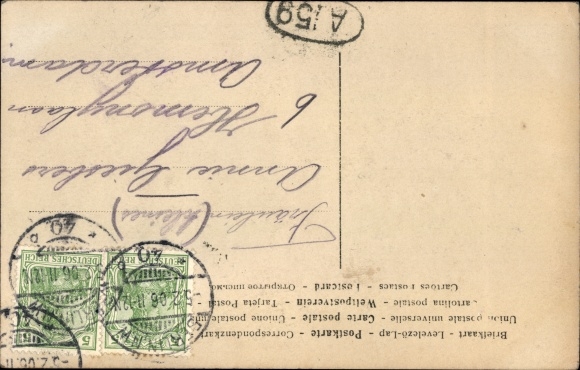 Briefkaart - Levelező-Lap - Postkarte - Correspondenzkarte
Unión postale universelle - Carte postale - Unione postale
Cartolina postale - Weltpostverein - Tarjeta Postal
Cartões Postaes - Postcard - Открытое письмо
Fräulein (kleines)
Annie
6 Hemonylaan
Amsterdam
A 159
DEUTSCHES REICH
5
DEUTSCHES REICH
5.2.06. 11-12